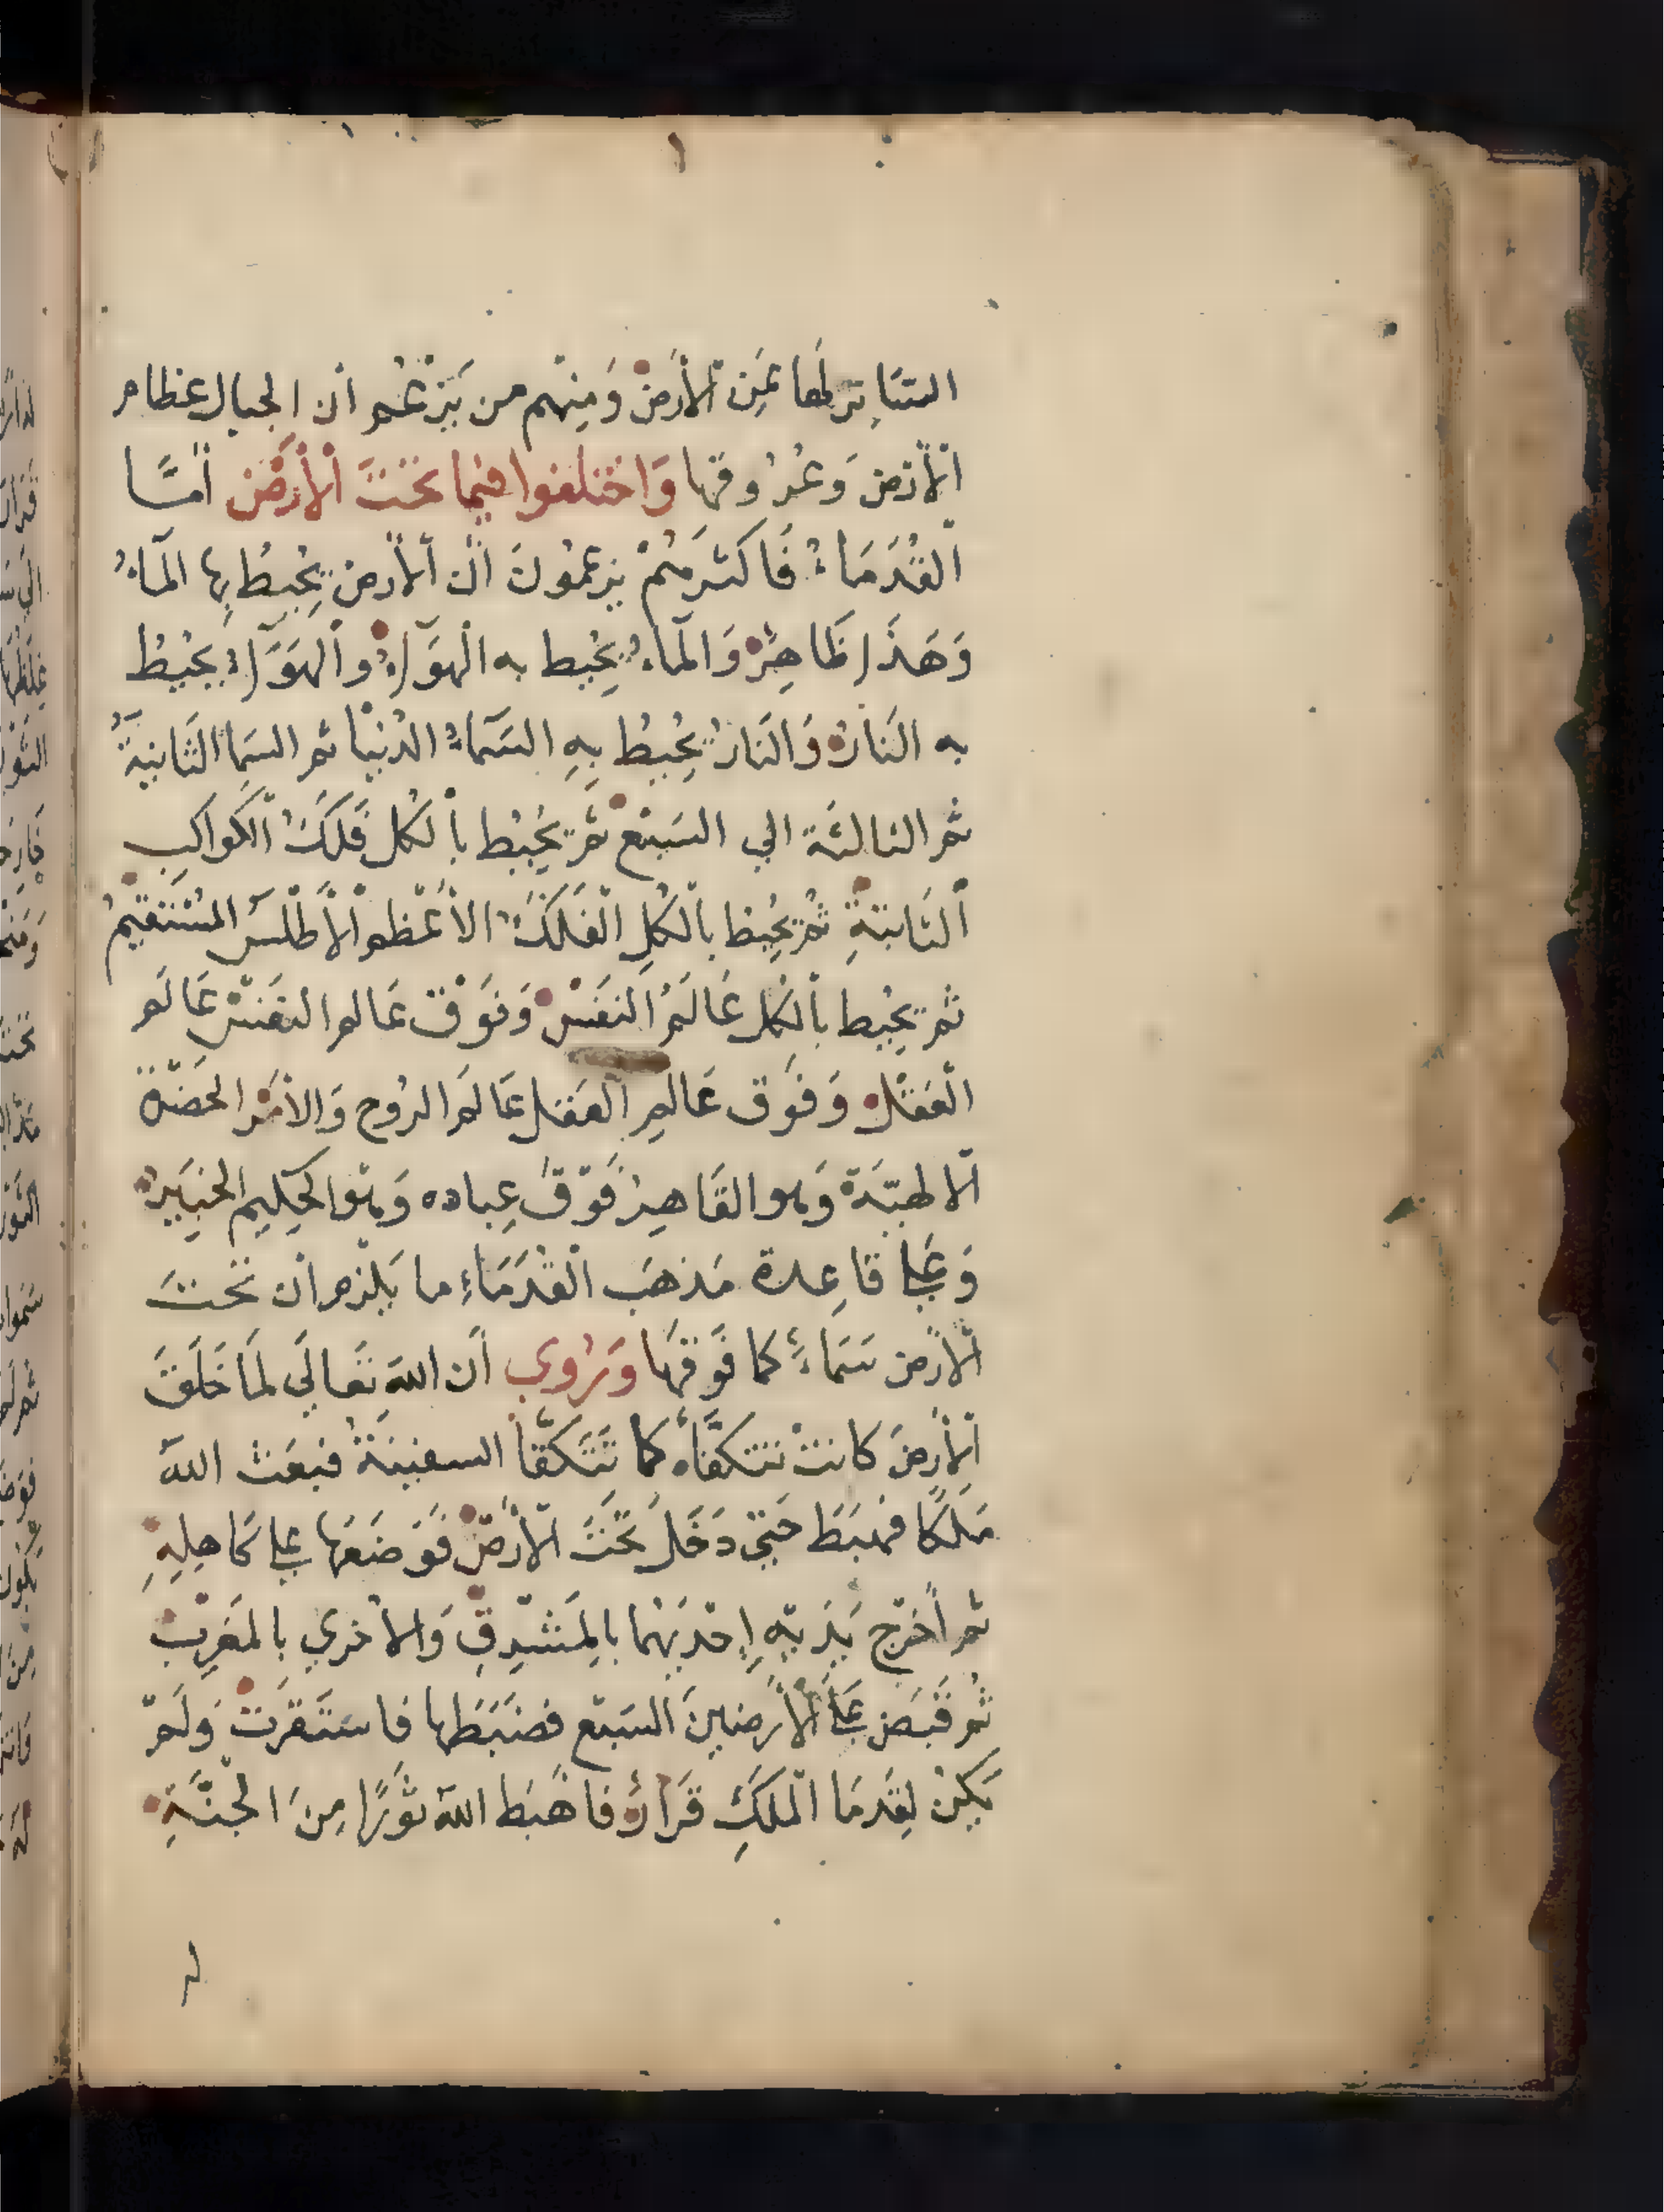 السَّائر لها عَن الأرضْ وَمِنْهم من يَزْعُم أن الجبال عظام
الأرض وَعُروقها وَاختلفوا فيما تحْتَ الأرْضْ أمَّا
القُدَمَاءُ فَاكثرهُمْ يزعمُونَ أنّ الأرض يُحِيطُ بِها المَاءُ
وَهَذَا ظَاهِرٌ وَالمَاءُ يُحِيط به الهَوَاءُ والهَوَاءُ يُحِيطُ
به النَارُ وَالنَارُ يُحِيطُ بِهِ السَّمَاءُ الدُنيْا ثم السَمَا الثَانِيَةُ
ثم الثالثَة الي السَبْع ثمَّ يُحِيْط بالكل فَلَكُ الكَواكِب
الثَابتةِ ثُمّ يُحِيْط بالكُلِ الفَلَكُ الأعْظم الأطْلَس المُسْتَقيْمُ
ثُم يُحِيْط بالكل عَالَمُ النَفَسْ وَفَوْقَ عَالم النفَسْ عَالَم
العَقْل وَفَوْق عَالمِ العَقل عَالَم الرُوح وَالأمْر الحَضْرَة
الالهيَّة وَهو القَاهِرُ فَوْقَ عِباده وَهْوَ الحَكِيم الخبَيرُ
وَعَلي قاعِدة مَذهَب القُدَمَاءِ ما يَلْزم أن تحْتَ
الأرْض سَمَاءً كما فَوْقَها وَيرُوي أَن اللهَ تعَالَي لَمَا خَلَقَ
الأرْضَ كانتْ تتكفَّاه كما تَتَكَفَّأ السفِينَةُ فبعَث اللهُ
مَلكًا فهبَطَ حَتيّ دَخَلَ تحْتَ الأرْضْ فَوَضَعَها علي كَاهِلِهِ
ثم أخرَج يَدَيْهِ إحْدَيهُما بالمَشْرِقِ وَالأخري بِالمَغرِبْ
ثُم قَبَضَ عَلَي الأرَضِينَ السَبْع فضَبَطَها فاسْتَقرَتْ وَلَمْ
يَكِنْ لِقَدَمَا المَلَكِ قَرَارٌ فَاهْبَط اللهُ ثَوْرًا مِنَ الجنَّةِ
لهُ